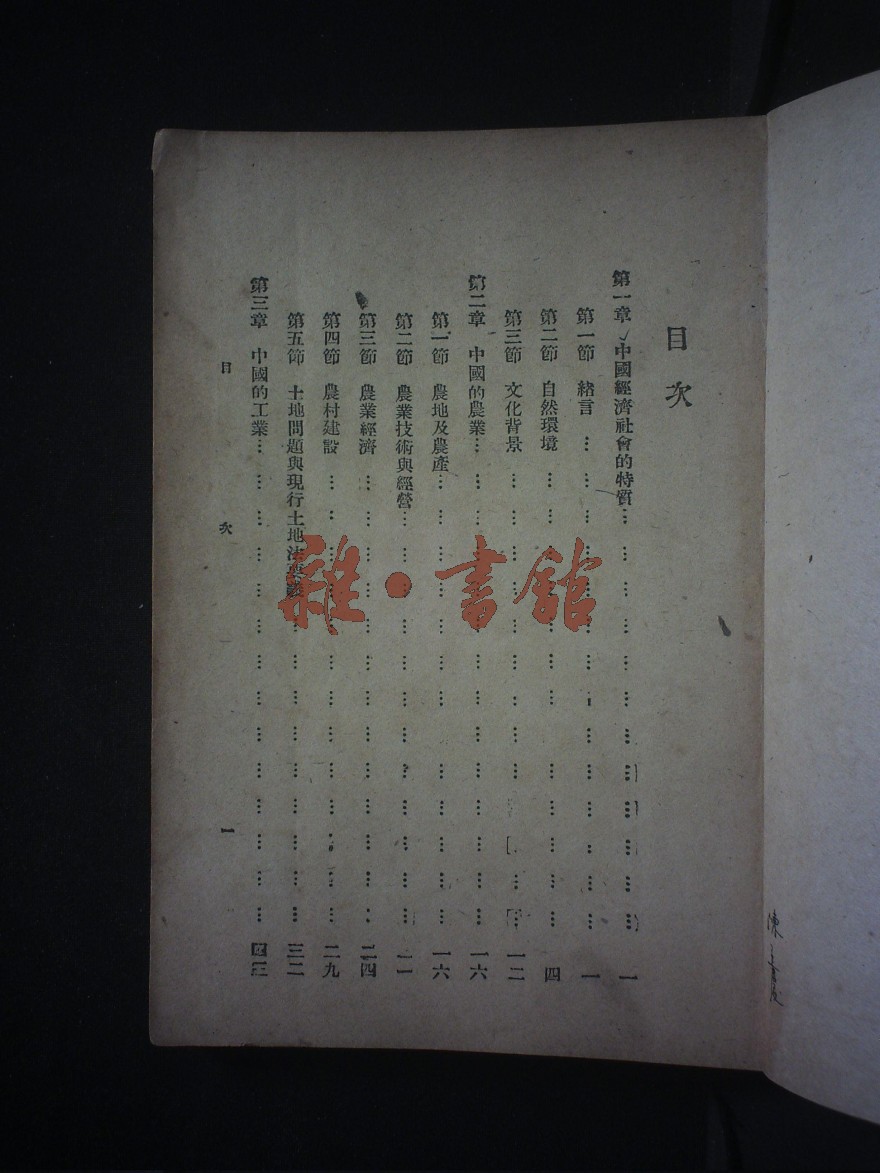 目次
第一章 中國經濟社會的特質………………………………一
第一節 緒言………………………………一
第二節 自然環境………………………………四
第三節 文化背景………………………………一二
第二章 中國的農業………………………………一六
第一節 農地及農產………………………………一六
第二節 農業技術與經營………………………………
第三節 農業經濟………………………………二四
第四節 農村建設………………………………二九
第五節 土地問題與現行土地法………………………………三二
第三章 中國的工業………………………………四三
目次 一
雜·書舘